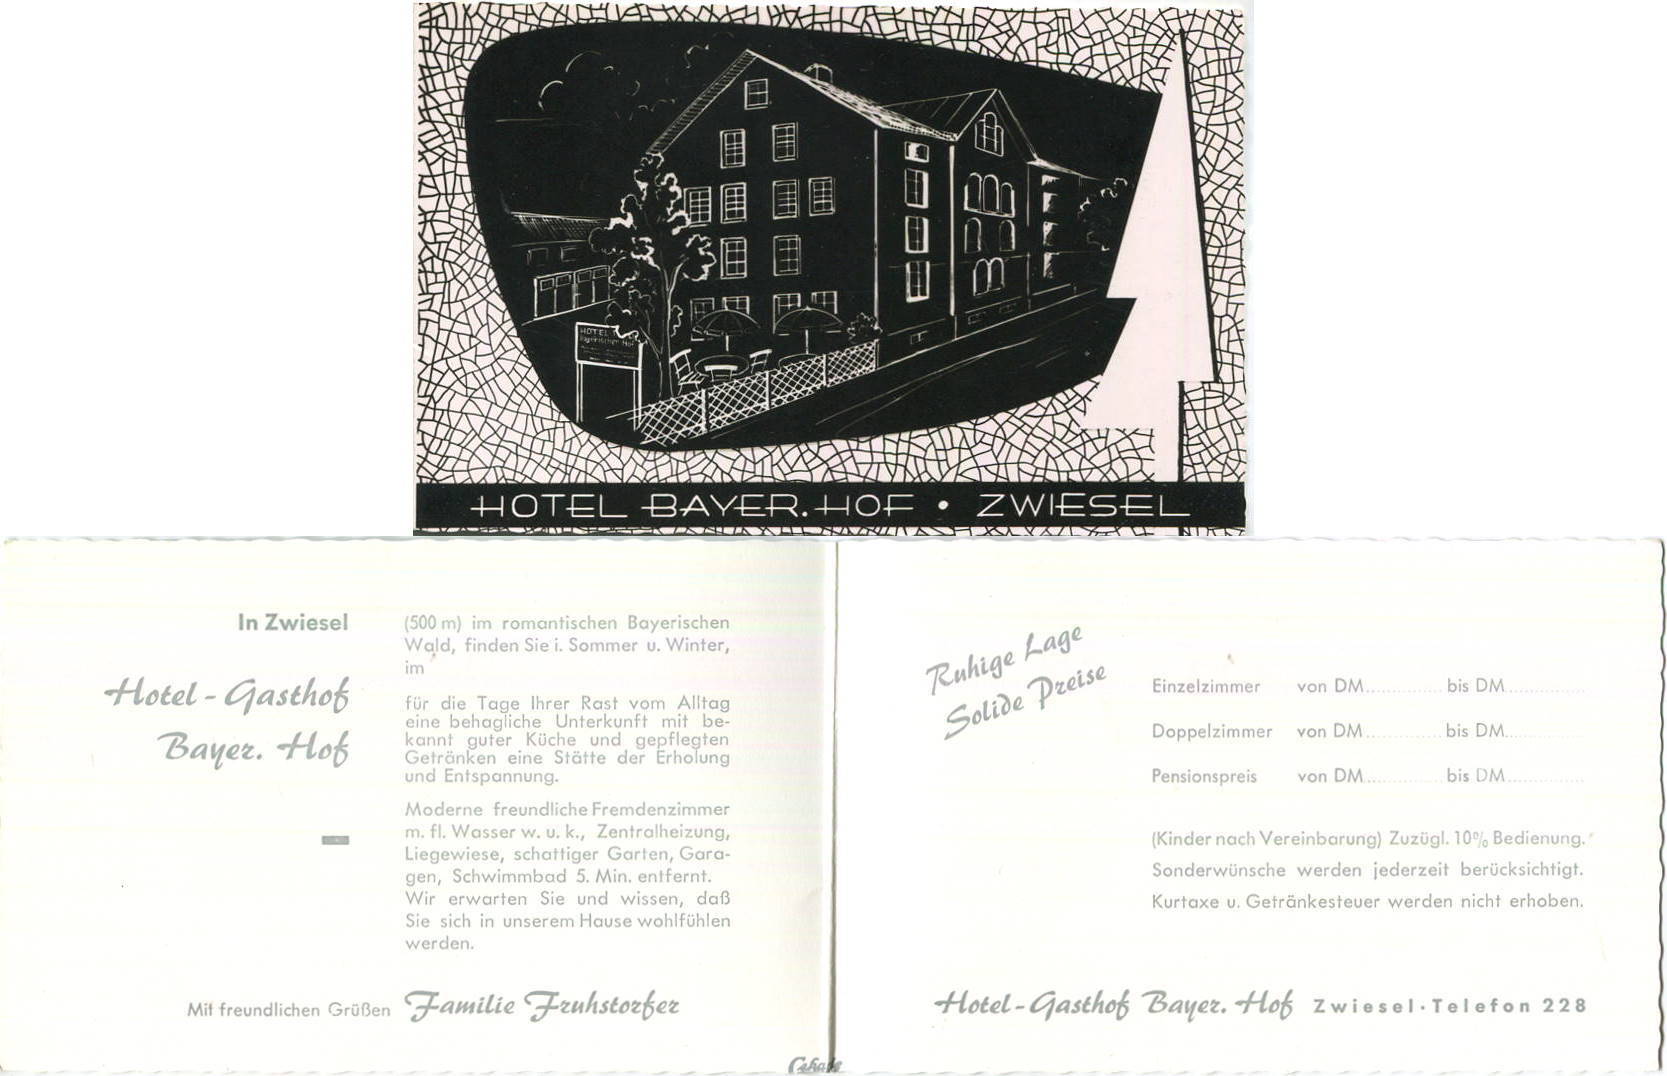 HOTEL
Bayerischer Hof
HOTEL BAYER. HOF • ZWIESEL
In Zwiesel
Hotel - Gasthof
Bayer. Hof
(500 m) im romantischen Bayerischen
Wald, finden Sie i. Sommer u. Winter,
im
für die Tage Ihrer Rast vom Alltag
eine behagliche Unterkunft mit be-
kannt guter Küche und gepflegten
Getränken eine Stätte der Erholung
und Entspannung.
Moderne freundliche Fremdenzimmer
m. fl. Wasser w. u. k., Zentralheizung,
Liegewiese, schattiger Garten, Gara-
gen, Schwimmbad 5. Min. entfernt.
Wir erwarten Sie und wissen, daß
Sie sich in unserem Hause wohlfühlen
werden.
Mit freundlichen Grüßen Familie Fruhstorfer
Ruhige Lage
Solide Preise
Einzelzimmer von DM.............. bis DM..............
Doppelzimmer von DM.............. bis DM..............
Pensionspreis von DM.............. bis DM..............
(Kinder nach Vereinbarung) Zuzügl. 10% Bedienung.
Sonderwünsche werden jederzeit berücksichtigt.
Kurtaxe u. Getränkesteuer werden nicht erhoben.
Hotel-Gasthof Bayer. Hof Zwiesel · Telefon 228